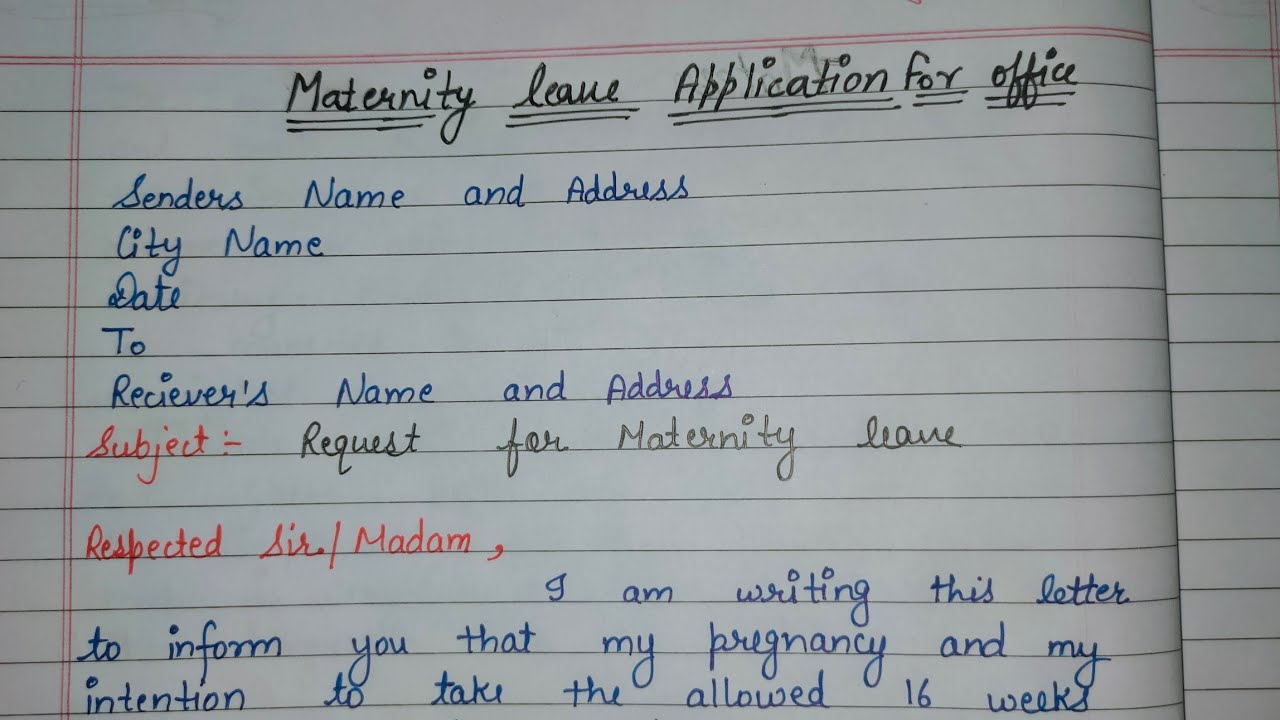 Maternity leave Application For office
Senders Name and Address
City Name
Date
To
Reciever's Name and Address
Subject:- Request for Maternity leave
Respected Sir/Madam,
I am writing this letter
to inform you that my pregnancy and my
intention to take the allowed 16 weeks